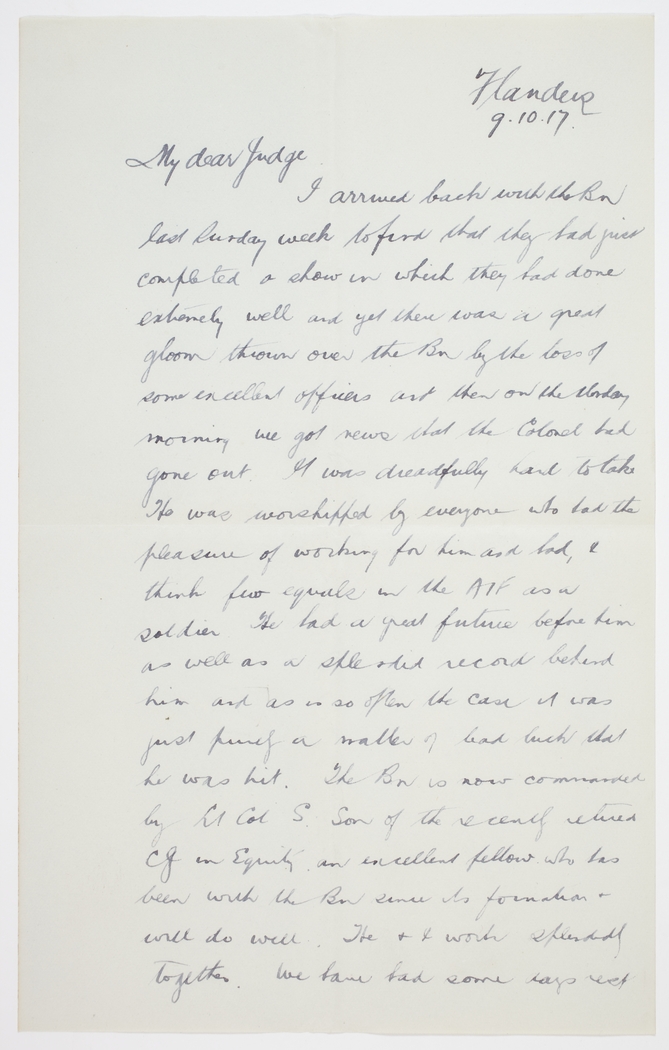 Flanders
9.10.17.
My dear Judge
I arrived back with the Bn
last Sunday week to find that they had just
completed a show in which they had done
extremely well and yet there was a great
gloom thrown over the Bn by the loss of
some excellent officers and then on the Monday
morning we got news that the Colonel had
gone out. It was dreadfully hard to take
He was worshipped by everyone who had the
pleasure of working for him and had, I
think few equals in the AIF as a
soldier. He had a great future before him
as well as a splendid record behind
him and as is so often the case it was
just purely a matter of bad luck that
he was hit. The Bn is now commanded
by Lt Col S. Son of the recently retired
CJ in Equity, an excellent fellow who has
been with the Bn since its formation &
will do well. He & I work splendidly
together. We have had some days rest